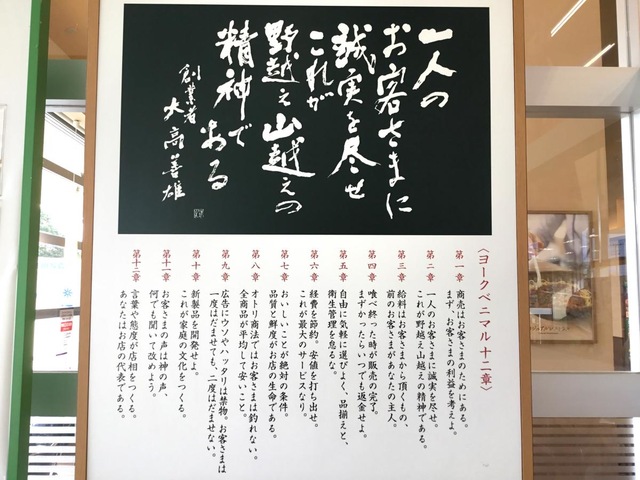 一人の
お客さまに
誠実を尽せ
これが
野越え山越えの
精神で
ある
創業者
大高善雄
〈ヨークベニマル十二章〉
第一章
商売はお客さまのためにある。
まず、お客さまの利益を考えよ。
第二章
一人のお客さまに誠実を尽せ。
これが野越え山越えの精神である。
第三章
給料はお客さまから頂くもの、
前のお客さまがあなたの主人。
第四章
喰べ終った時が販売の完了。
まずかったらいつでも返金せよ。
第五章
自由に気軽に選びよく、品揃えと、
衛生管理を怠るな。
第六章
経費を節約。安値を打ち出せ。
これが最大のサービスなり。
第七章
おいしいことが絶対の条件。
品質と鮮度がお店の生命である。
第八章
オトリ商法ではお客さまは釣れない。
全商品が平均して安いこと。
第九章
広告にウソやハッタリは禁物。お客さまは
一度はだませても、二度はだませない。
第十章
新製品を開発せよ。
これが家庭の文化をつくる。
第十一章
お客さまの声は神の声、
何でも聞いて改めよう。
第十二章
言葉や態度が店相をつくる。
あなたはお店の代表である。